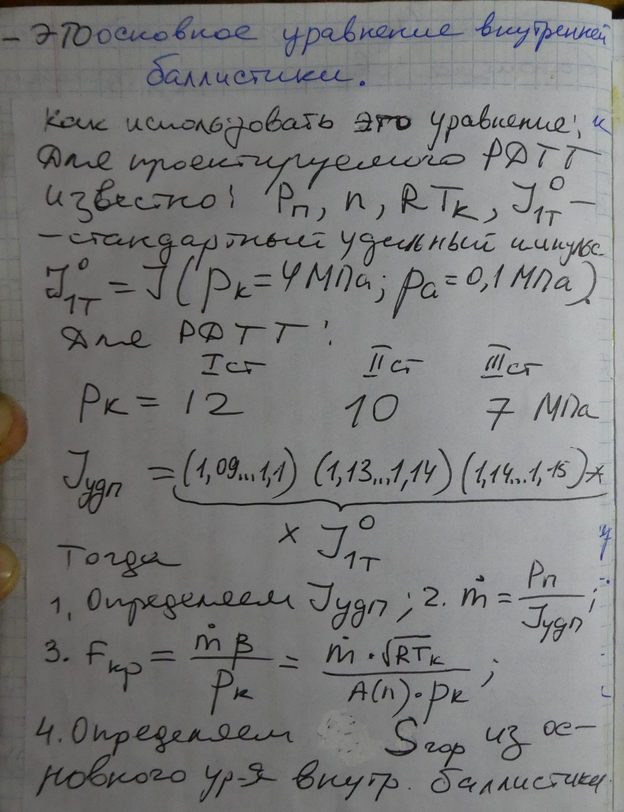 – это основное уравнение внутренней
баллистики.
Как использовать это уравнение;
Для проектируемого РДТТ
известно: Pп, n, RTк, J⁰1Т –
– стандартный удельный импульс
J⁰1Т = J (pк = 4 МПа; pа = 0,1 МПа)
Для РДТТ:
I ст II ст III ст
pк = 12 10 7 МПа
Jудп = (1,09...1,1) (1,13...1,14) (1,14...1,15) ×
× J⁰1Т
Тогда
1, Определяем Jудп; 2. ṁ = Pп / Jудп;
3. Fкр = ṁ β / pк = ṁ · √RTк / A(n) · pк;
4. Определяем Sгор из ос–
новного ур-я внутр. баллистики